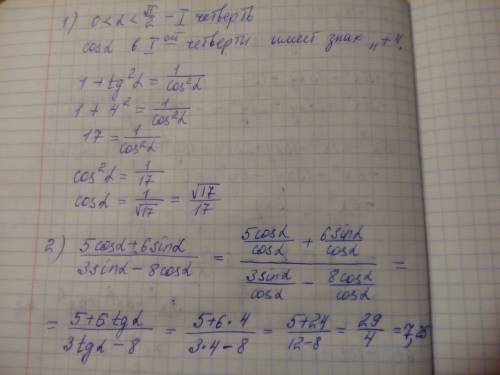 1) 0 < α < π/2 - I четверть
cosα в I ой четверти имеет знак „+".
1 + tg²α = 1/cos²α
1 + 4² = 1/cos²α
17 = 1/cos²α
cos²α = 1/17
cosα = 1/√17 = √17/17
2) (5cosα + 6sinα)/(3sinα - 8cosα) = (5cosα/cosα + 6sinα/cosα)/(3sinα/cosα - 8cosα/cosα) =
= (5+6tgα)/(3tgα - 8) = (5+6·4)/(3·4-8) = (5+24)/(12-8) = 29/4 = 7,25